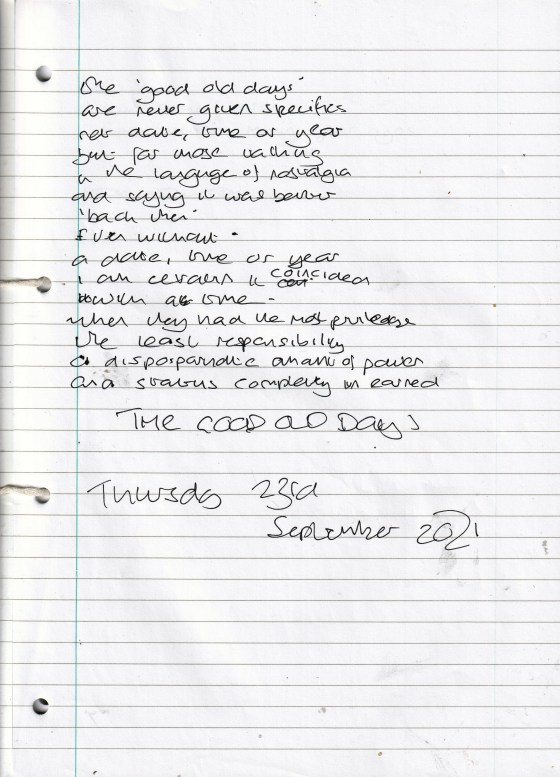 the 'good old days'
are never given specifics
nor date, time or year
but for those talking
in the language of nostalgia
and saying it was better
'back then'
Even without
a date, time or year
I am certain it coincided
with a time
when they had the most privledge
the least responsibility
a disproportionate amount of power
and status completely un earned
THE GOOD OLD DAYS
Thursday 23rd
September 2021